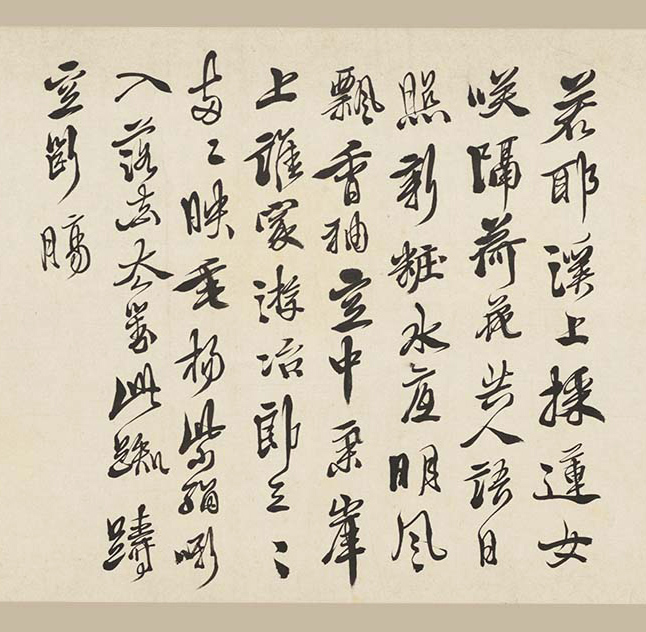 若耶溪上採蓮女
咲隔荷花共人語日
照新粧水底明風
飄香袖空中舉岸
上誰家游冶郎三〻
五〻映垂楊紫騮嘶
入落花去此踟躕
空斷腸